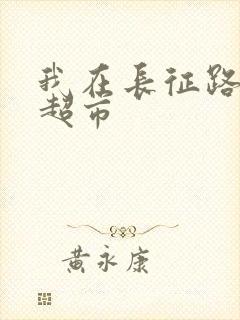 我在長征路
超市
黃永康